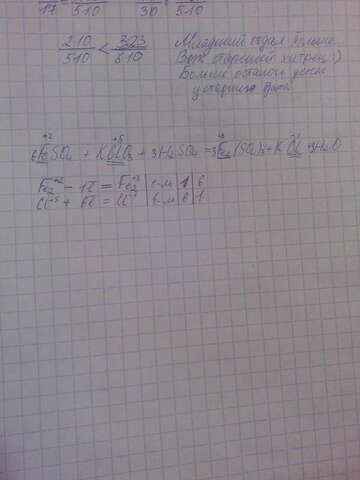 17 = 5·10 30 5·10
210/510 < 323/510 Младший отдал больше
Вот старший хитрец :)
Больше осталось денег
у старшего брата
+2 +5 +3 -1
6FeSO4 + KClO3 + 3H2SO4 = 3Fe2(SO4)3 + KCl + 3H2O
Fe+2 - 1e = Fe2+3 | в-ль | 1 | 6
Cl+5 + 6e = Cl- | о-ль | 6 | 1